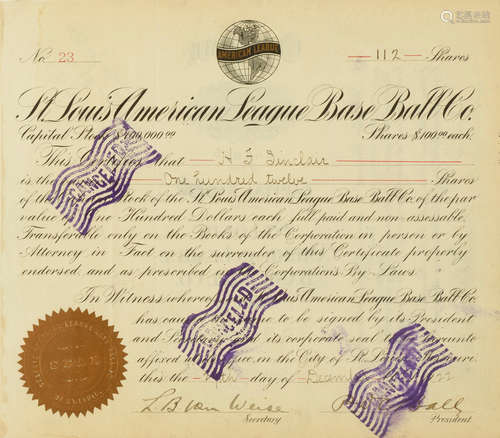 AMERICAN LEAGUE
No. 23
112 Shares
St. Louis American League Base Ball Co.
Capital Stock $ 00,000.00 Shares $100.00 each.
This that H F Sinclair
is the One hundred twelve Shares
of the Stock of the St. Louis American League Base Ball Co. of the par
value One Hundred Dollars each full paid and non-assessable,
Transferable only on the Books of the Corporation in person or by
Attorney in Fact on the surrender of this Certificate properly
endorsed and as prescribed Corporations By-Laws.
In Witness whereof St. Louis American League Base Ball Co.
has to be signed by its President
and its corporate seal to hereunto
affixed office, in the City of St. Louis
this the day of
CANCELLED
CANCELLED
CANCELLED
L B Von Weise
Secretary
President